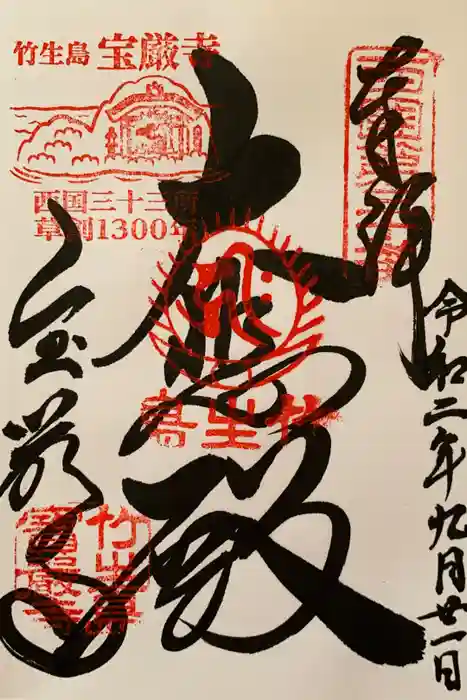 奉拝
令和二年九月廿一日
大悲殿
宝厳寺
竹生島 宝厳寺
西国三十三所
草創1300年
竹生島
竹生島
寶嚴寺